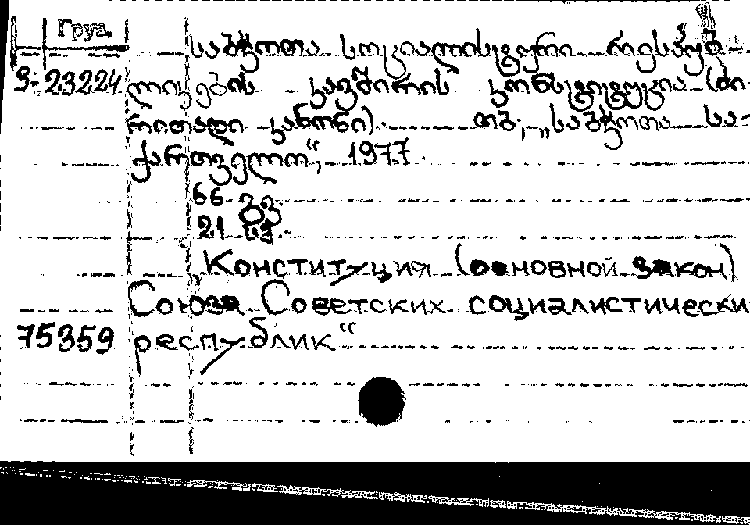 Груз.
საბჭოთა სოციალისტური რესპუბ-
3-23224 ლიკების კავშირის კონსტიტუცია (ძი-
რითადი კანონი). თბ., „საბჭოთა სა-
ქართველო“, 1977.
66 გვ
21 სმ.
„Конституция (основной закон)
Союза Советских социалистически
75359 республик“